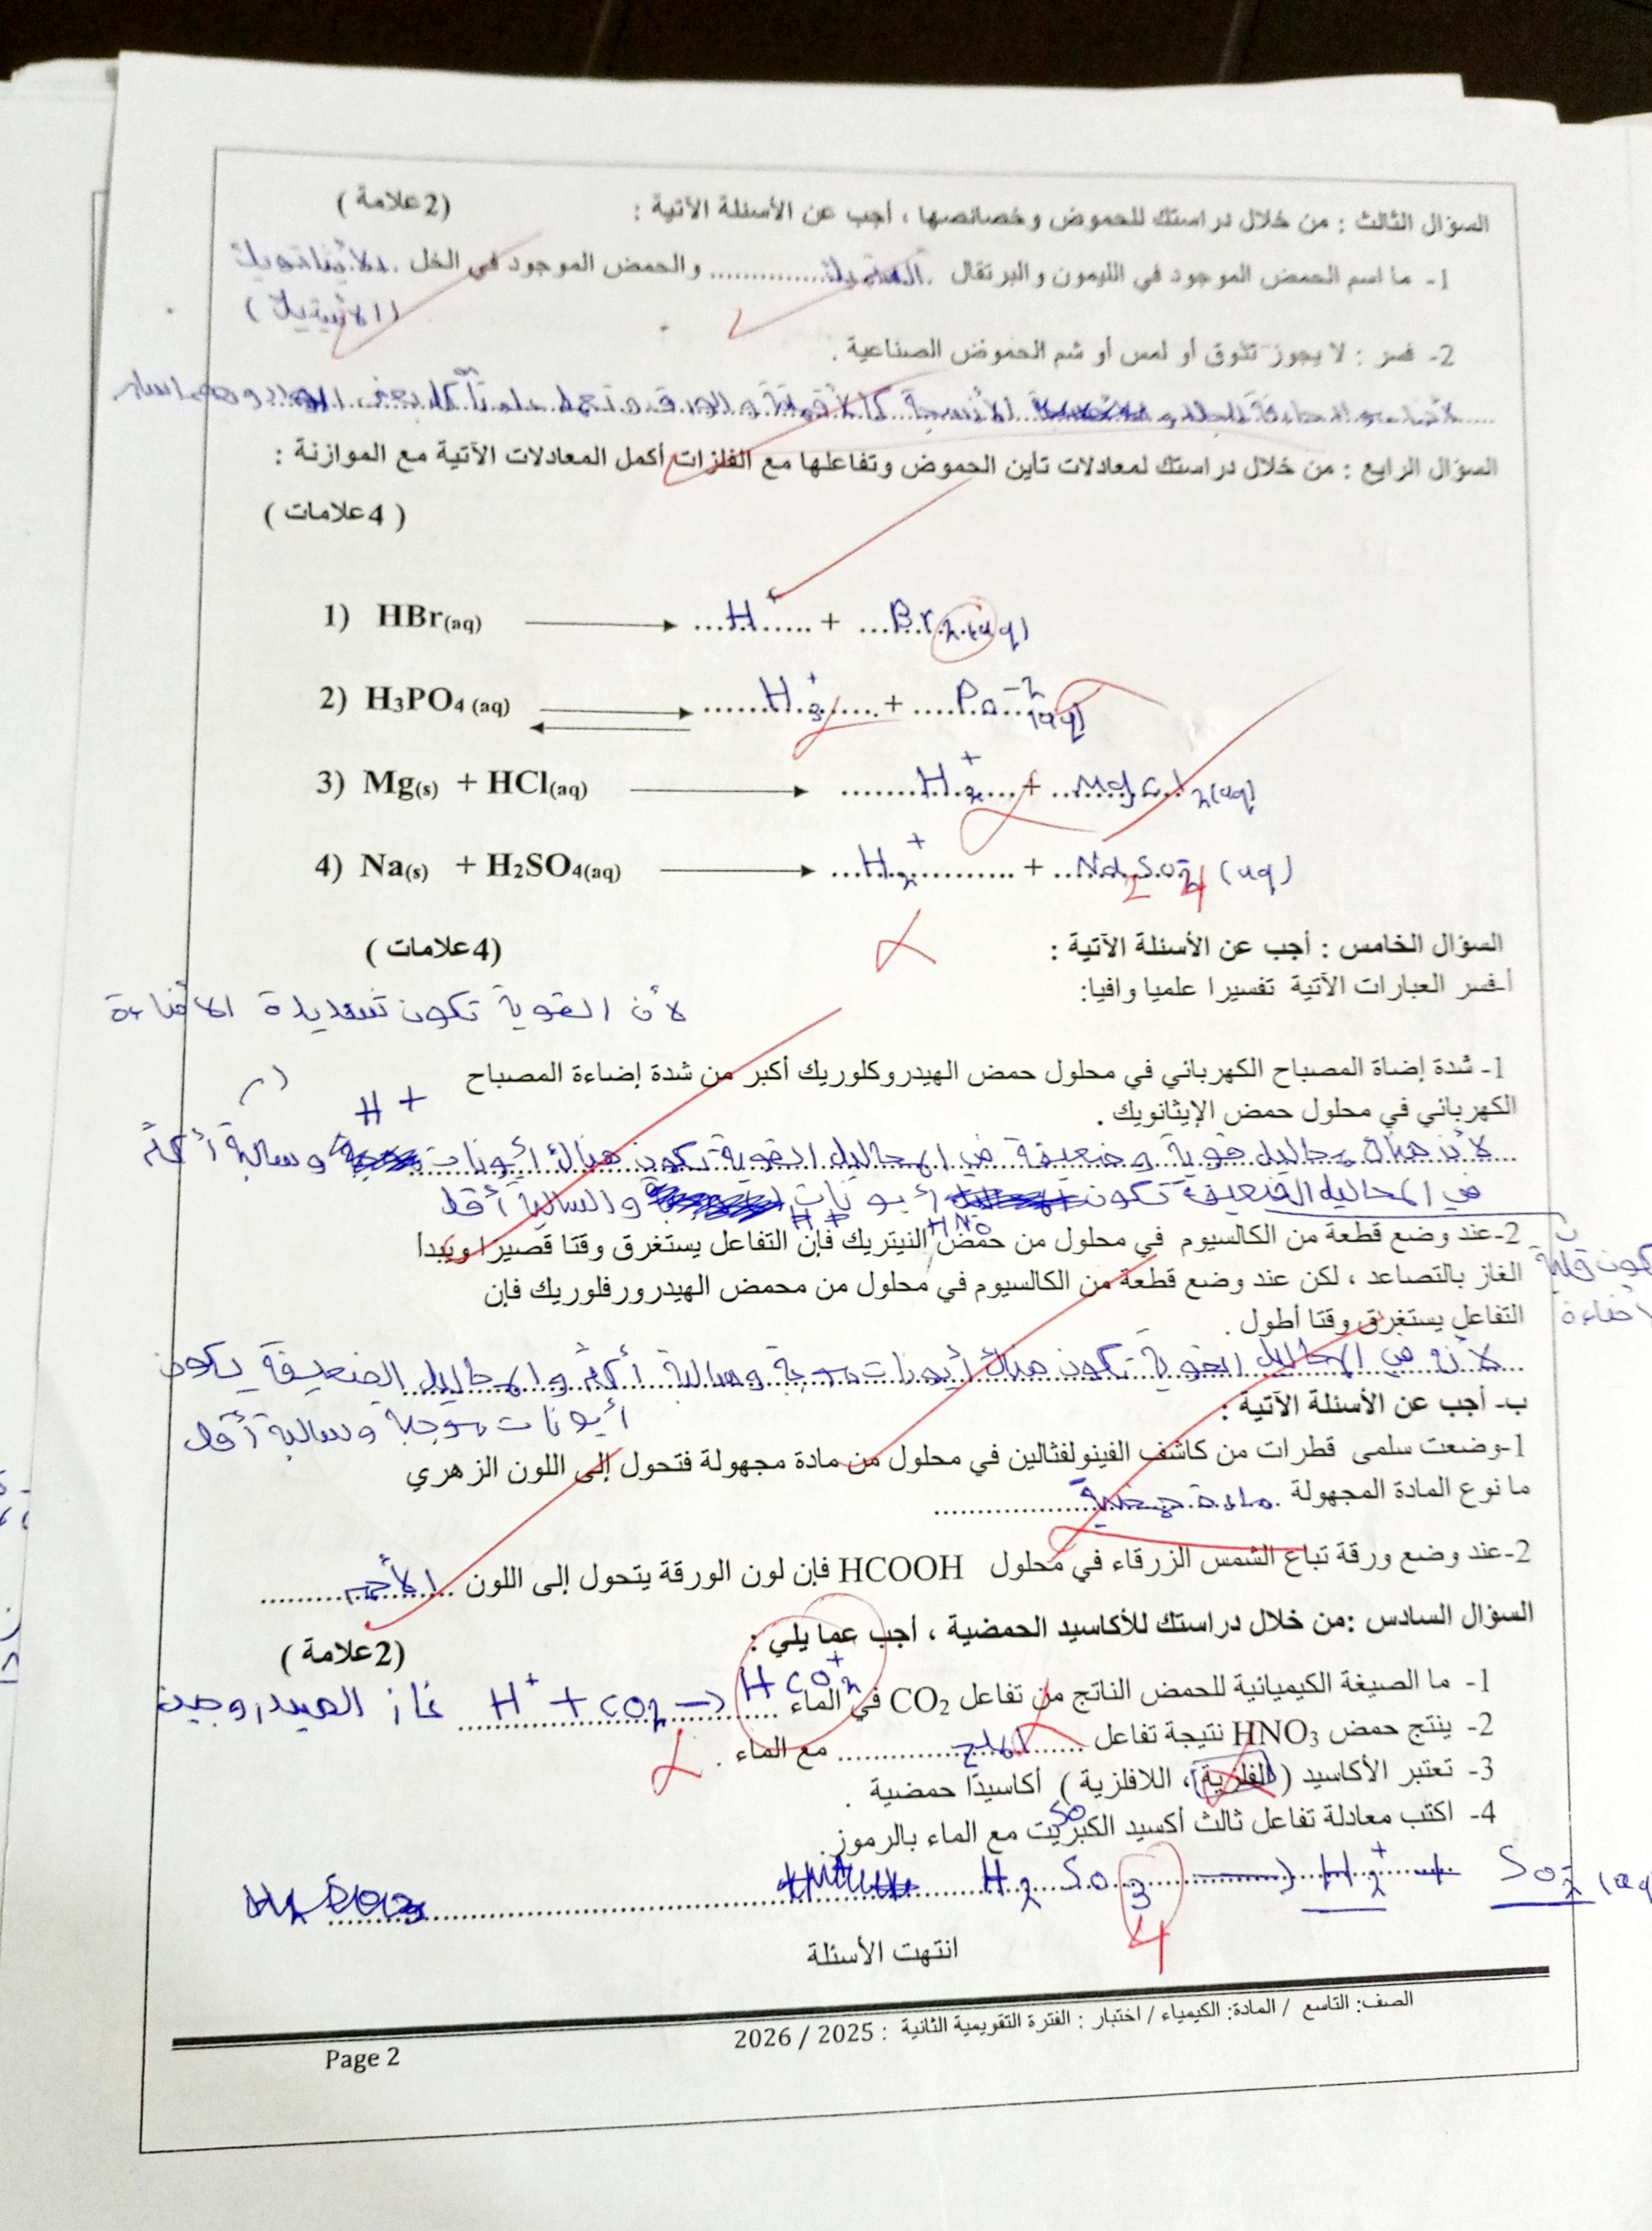 السؤال الثالث : من خلال دراستك للحموض وخصائصها ، أجب عن الأسئلة الآتية : (2علامة )
1- ما اسم الحمض الموجود في الليمون والبرتقال .............. والحمض الموجود في الخل . الأيثانويك
2- فسر : لا يجوز تذوق أو لمس أو شم الحموض الصناعية .
السؤال الرابع : من خلال دراستك لمعادلات تأين الحموض وتفاعلها مع الفلزات أكمل المعادلات الآتية مع الموازنة :
( 4علامات )
1) HBr(aq) → H+ + Br2(aq)
2) H3PO4 (aq) ⇄ H3+ + Po-2(aq)
3) Mg(s) + HCl(aq) → H2+ + MgCl2(aq)
4) Na(s) + H2SO4(aq) → H2+ + Na2So4 (aq)
السؤال الخامس : أجب عن الأسئلة الآتية : (4علامات )
أ-فسر العبارات الآتية تفسيرا علميا وافيا:
لأن القوية تكون شديدة الاضاءة
1- شدة إضاة المصباح الكهربائي في محلول حمض الهيدروكلوريك أكبر من شدة إضاءة المصباح
الكهربائي في محلول حمض الإيثانويك .
H+
لأن هناك محاليل قوية وضعيفة في المحاليل القوية تكون هناك أيونات وسالبة أكثر
في المحاليل الضعيفة تكون أيونات والسالبة أقل
H+ HNO
2-عند وضع قطعة من الكالسيوم في محلول من حمض النيتريك فإن التفاعل يستغرق وقتا قصيرا ويبدأ
الغاز بالتصاعد ، لكن عند وضع قطعة من الكالسيوم في محلول من محمض الهيدرورفلوريك فإن
التفاعل يستغرق وقتا أطول .
لأنه في المحاليل القوية تكون هناك أيونات موجبة وسالبة أكثر والمحاليل الضعيفة يكون
أيونات موجبة وسالبة أقل
ب- أجب عن الأسئلة الآتية :
1-وضعت سلمى قطرات من كاشف الفينولفثالين في محلول من مادة مجهولة فتحول إلى اللون الزهري
ما نوع المادة المجهولة . مادة حمضية
2-عند وضع ورقة تباع الشمس الزرقاء في محلول HCOOH فإن لون الورقة يتحول إلى اللون الأحمر
السؤال السادس :من خلال دراستك للأكاسيد الحمضية ، أجب عما يلي : (2علامة )
1- ما الصيغة الكيميائية للحمض الناتج من تفاعل CO2 في الماء H+ + CO2 → HCO2+ غاز الهيدروجين
2- ينتج حمض HNO3 نتيجة تفاعل ............ مع الماء .
3- تعتبر الأكاسيد ( الفلزية ، اللافلزية ) أكاسيدًا حمضية .
So
4- اكتب معادلة تفاعل ثالث أكسيد الكبريت مع الماء بالرموز.
H2So3 → H2+ + So2- (aq
4
انتهت الأسئلة
الصف: التاسع / المادة: الكيمياء / اختبار : الفترة التقويمية الثانية : 2025 / 2026
Page 2